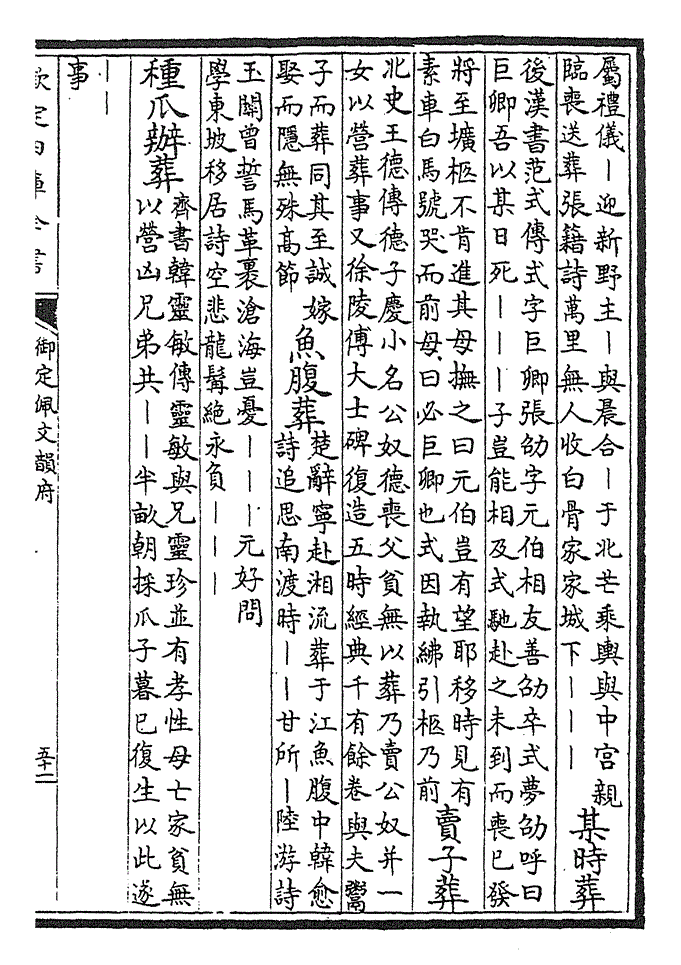 屬禮儀｜迎新野主｜與晨合｜于北芒乘輿與中宮親
臨喪送葬張籍詩萬里無人收白骨家家城下｜｜｜
某時葬
後漢書范式傳式字巨卿張劭字元伯相友善劭卒式夢劭呼曰
巨卿吾以某日死｜｜｜子豈能相及式馳赴之未到而喪已發
將至壙柩不肯進其母撫之曰元伯豈有望耶移時見有
素車白馬號哭而前母曰必巨卿也式因執紼引柩乃前
賣子葬
北史王德傳德子慶小名公奴德喪父貧無以葬乃賣公奴并一
女以營葬事又徐陵傅大士碑復造五時經典千有餘卷與夫鬻
子而葬同其至誠嫁
娶而隱無殊高節
魚腹葬
楚辭寧赴湘流葬于江魚腹中韓愈
詩追思南渡時｜｜甘所｜陸游詩
玉關曾誓馬革裹滄海豈憂｜｜｜元好問
學東坡移居詩空悲龍髯絕永負｜｜｜
種瓜辦葬
齊書韓靈敏傳靈敏與兄靈珍並有孝性母亡家貧無
以營凶兄弟共｜｜半畝朝採瓜子暮已復生以此遂
｜｜
事
欽定四庫全書
御定佩文韻府
五十二